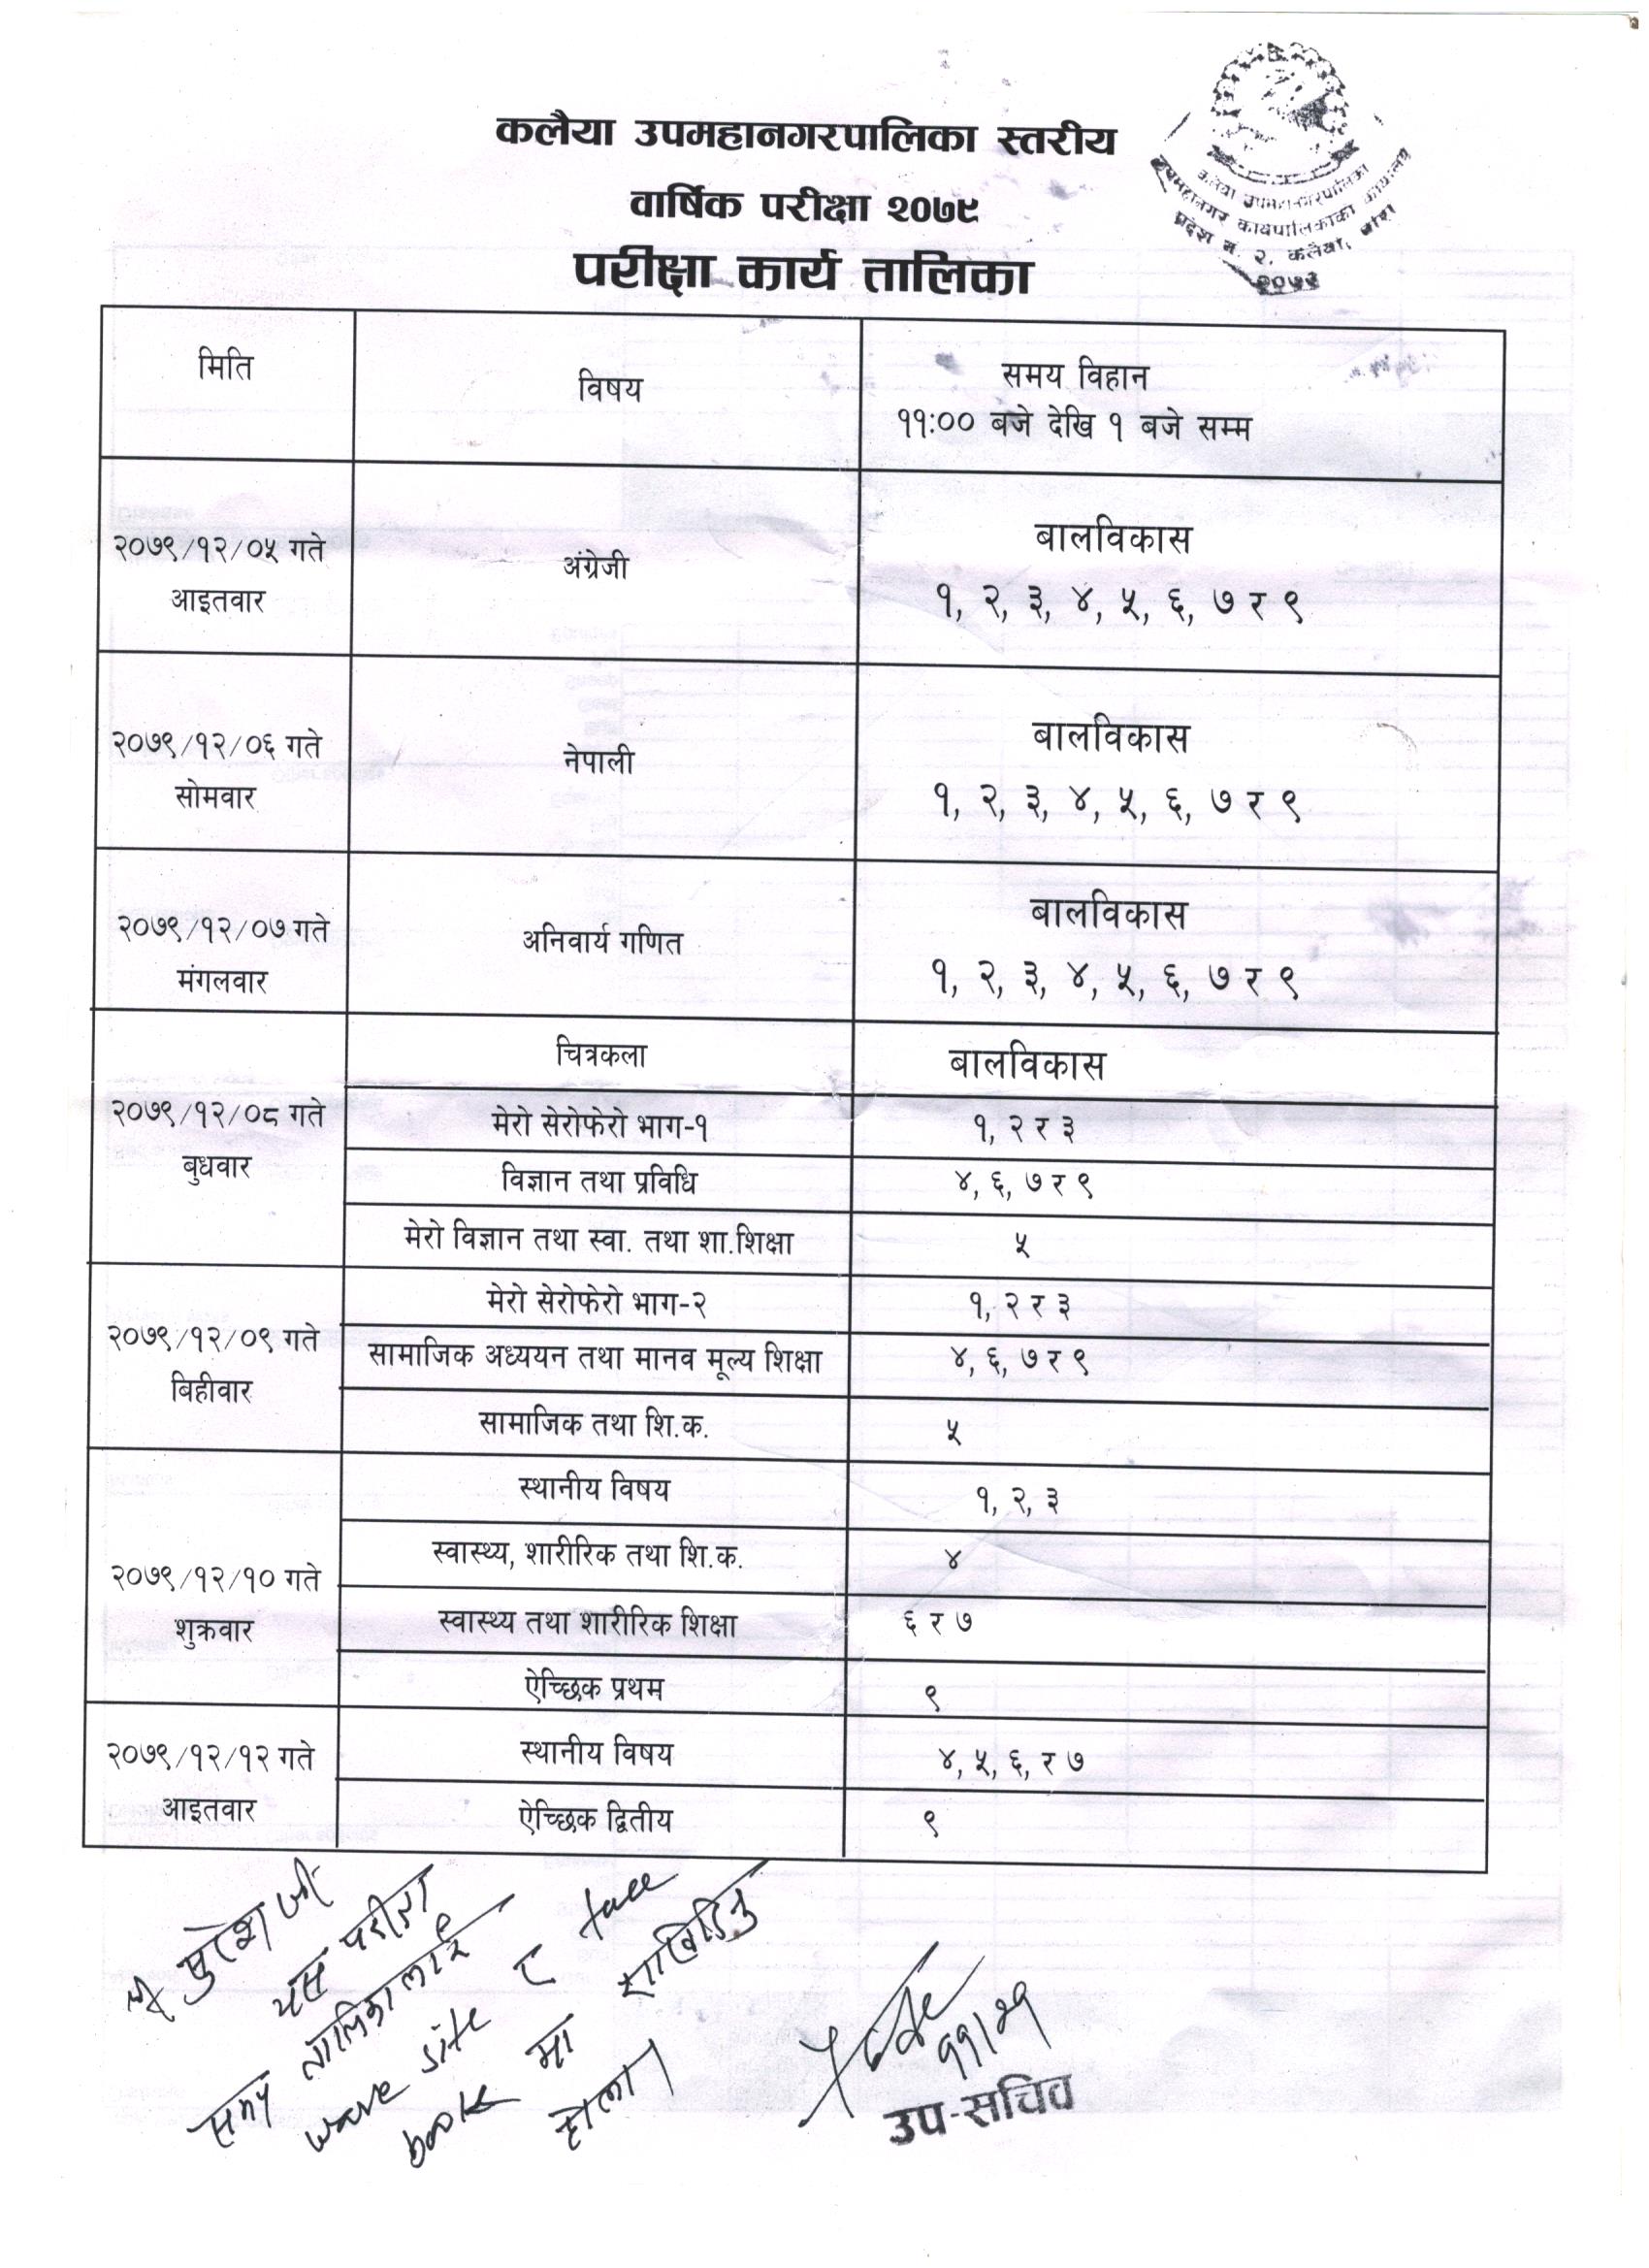 कलैया उपमहानगरपालिका स्तरीय
वार्षिक परीक्षा २०७९
परीक्षा कार्य तालिका
कलैया उपमहानगरपालिका
उपमहानगर कार्यपालिकाको कार्यालय
प्रदेश नं. २, कलैया, बारा
२०७३
मिति
विषय
समय विहान
११:०० बजे देखि १ बजे सम्म
२०७९/१२/०५ गते
आइतवार
अंग्रेजी
बालविकास
१, २, ३, ४, ५, ६, ७ र ९
२०७९/१२/०६ गते
सोमवार
नेपाली
बालविकास
१, २, ३, ४, ५, ६, ७ र ९
२०७९/१२/०७ गते
मंगलवार
अनिवार्य गणित
बालविकास
१, २, ३, ४, ५, ६, ७ र ९
२०७९/१२/०८ गते
बुधवार
चित्रकला
बालविकास
मेरो सेरोफेरो भाग-१
१, २ र ३
विज्ञान तथा प्रविधि
४, ६, ७ र ९
मेरो विज्ञान तथा स्वा. तथा शा.शिक्षा
५
२०७९/१२/०९ गते
बिहीवार
मेरो सेरोफेरो भाग-२
१, २ र ३
सामाजिक अध्ययन तथा मानव मूल्य शिक्षा
४, ६, ७ र ९
सामाजिक तथा शि.क.
५
२०७९/१२/१० गते
शुक्रवार
स्थानीय विषय
१, २, ३
स्वास्थ्य, शारीरिक तथा शि.क.
४
स्वास्थ्य तथा शारीरिक शिक्षा
६ र ७
ऐच्छिक प्रथम
९
२०७९/१२/१२ गते
आइतवार
स्थानीय विषय
४, ५, ६, र ७
ऐच्छिक द्वितीय
९
यस परीक्षा
तालिकालाई
wave site र face
book मा राखिदिनु
होला।
११/२१
उप-सचिव